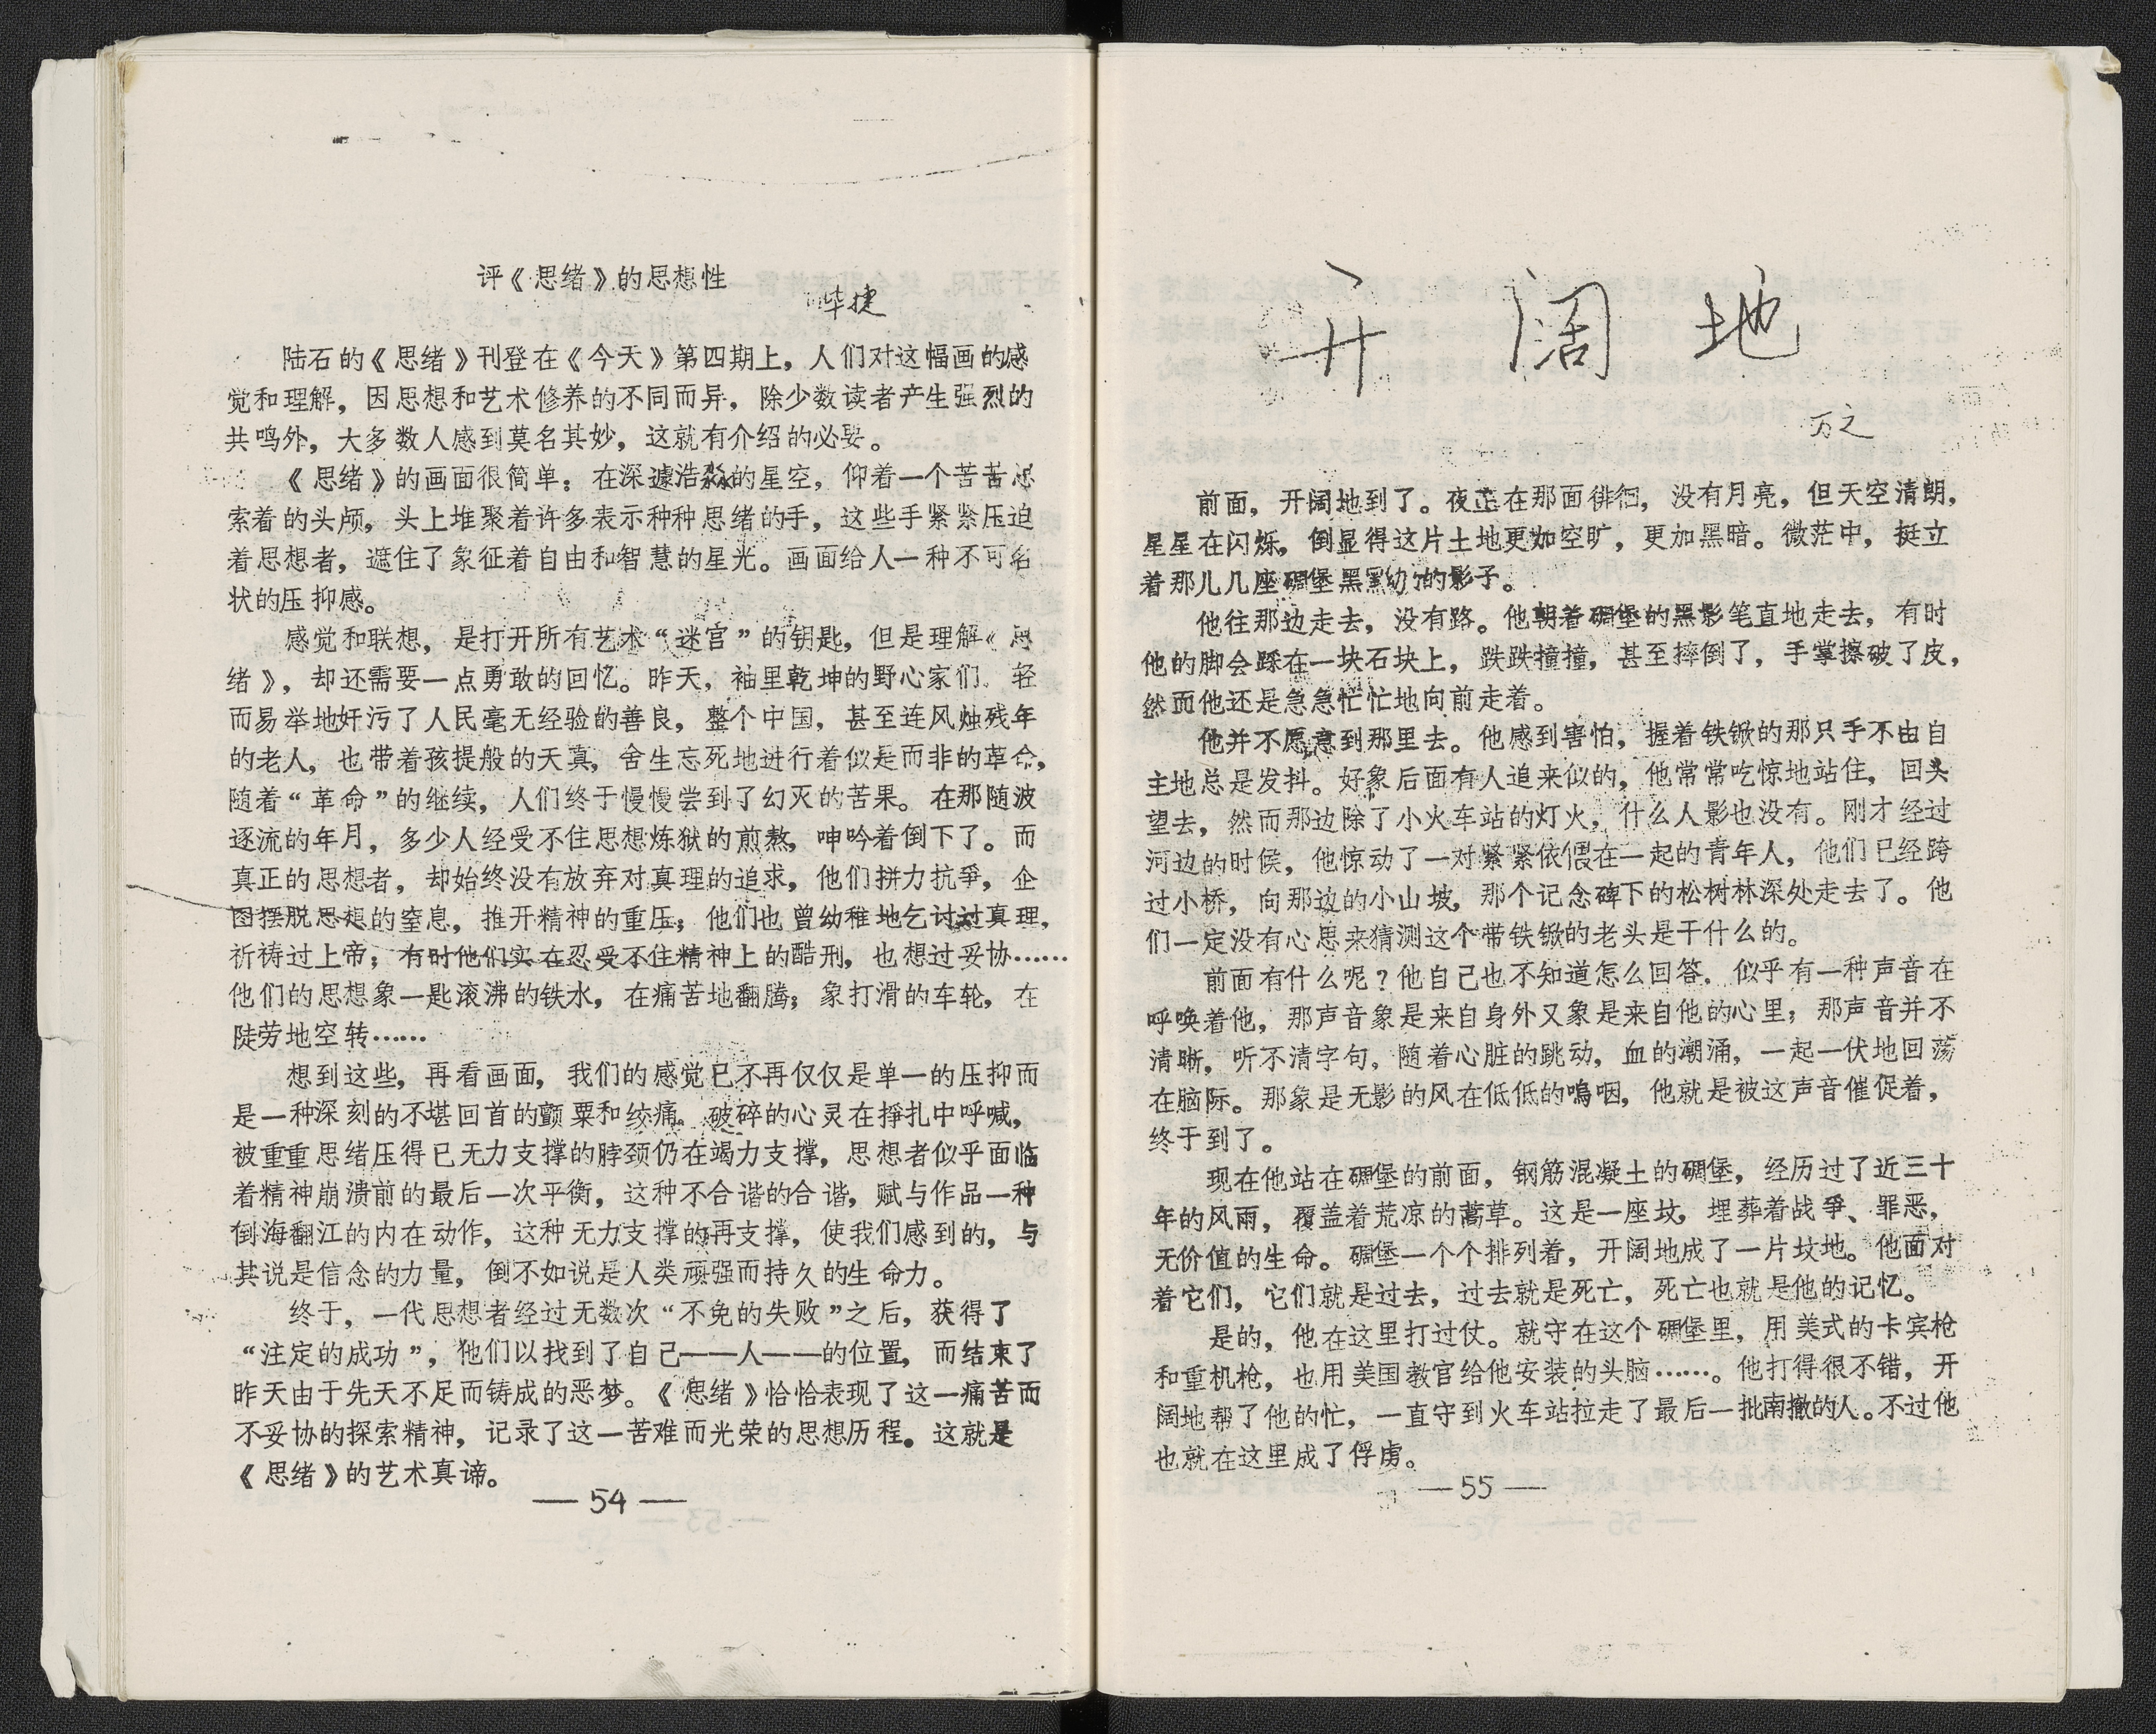 评《思绪》的思想性
华捷
陆石的《思绪》刊登在《今天》第四期上，人们对这幅画的感
觉和理解，因思想和艺术修养的不同而异，除少数读者产生强烈的
共鸣外，大多数人感到莫名其妙，这就有介绍的必要。
《思绪》的画面很简单：在深邃浩淼的星空，仰着一个苦苦思
索着的头颅，头上堆聚着许多表示种种思绪的手，这些手紧紧压迫
着思想者，遮住了象征着自由和智慧的星光。画面给人一种不可名
状的压抑感。
感觉和联想，是打开所有艺术“迷宫”的钥匙，但是理解《思
绪》，却还需要一点勇敢的回忆。昨天，袖里乾坤的野心家们。轻
而易举地奸污了人民毫无经验的善良，整个中国，甚至连风烛残年
的老人，也带着孩提般的天真，舍生忘死地进行着似是而非的革命，
随着“革命”的继续，人们终于慢慢尝到了幻灭的苦果。在那随波
逐流的年月，多少人经受不住思想炼狱的煎熬，呻吟着倒下了。而
真正的思想者，却始终没有放弃对真理的追求，他们拼力抗争，企
图摆脱思想的窒息，推开精神的重压；他们也曾幼稚地乞讨过真理，
祈祷过上帝；有时他们实在忍受不住精神上的酷刑，也想过妥协……
他们的思想象一匙滚沸的铁水，在痛苦地翻腾；象打滑的车轮，在
陡劳地空转……
想到这些，再看画面，我们的感觉已不再仅仅是单一的压抑而
是一种深刻的不堪回首的颤粟和绞痛。破碎的心灵在挣扎中呼喊，
被重重思绪压得已无力支撑的脖颈仍在竭力支撑，思想者似乎面临
着精神崩溃前的最后一次平衡，这种不合谐的合谐，赋与作品一种
倒海翻江的内在动作，这种无力支撑的再支撑，使我们感到的，与
其说是信念的力量，倒不如说是人类顽强而持久的生命力。
终于，一代思想者经过无数次“不免的失败”之后，获得了
“注定的成功”，他们以找到了自己——人——的位置，而结束了
昨天由于先天不足而铸成的恶梦。《思绪》恰恰表现了这一痛苦而
不妥协的探索精神，记录了这一苦难而光荣的思想历程。这就是
《思绪》的艺术真谛。
—54—
开阔地
万之
前面，开阔地到了。夜正在那面徘徊，没有月亮，但天空清朗，
星星在闪烁，倒显得这片土地更加空旷，更加黑暗。微茫中，挺立
着那儿几座碉堡黑黝黝的影子。
他往那边走去，没有路。他朝着碉堡的黑影笔直地走去，有时
他的脚会踩在一块石块上，跌跌撞撞，甚至摔倒了，手掌擦破了皮，
然而他还是急急忙忙地向前走着。
他并不愿意到那里去。他感到害怕，握着铁锨的那只手不由自
主地总是发抖。好象后面有人追来似的，他常常吃惊地站住，回头
望去，然而那边除了小火车站的灯火，什么人影也没有。刚才经过
河边的时侯，他惊动了一对紧紧依偎在一起的青年人，他们已经跨
过小桥，向那边的小山坡，那个记念碑下的松树林深处走去了。他
们一定没有心思来猜测这个带铁锨的老头是干什么的。
前面有什么呢？他自己也不知道怎么回答．似乎有一种声音在
呼唤着他，那声音象是来自身外又象是来自他的心里；那声音并不
清晰，听不清字句，随着心脏的跳动，血的潮涌，一起一伏地回荡
在脑际。那象是无影的风在低低的呜咽，他就是被这声音催促着，
终于到了。
现在他站在碉堡的前面，钢筋混凝土的碉堡，经历过了近三十
年的风雨，覆盖着荒凉的蒿草。这是一座坟，埋葬着战争、罪恶，
无价值的生命。碉堡一个个排列着，开阔地成了一片坟地。他面对
着它们，它们就是过去，过去就是死亡，死亡也就是他的记忆。
是的，他在这里打过仗。就守在这个碉堡里，用美式的卡宾枪
和重机枪，也用美国教官给他安装的头脑……。他打得很不错，开
阔地帮了他的忙，一直守到火车站拉走了最后一批南撤的人。不过他
也就在这里成了俘虏。
—55—